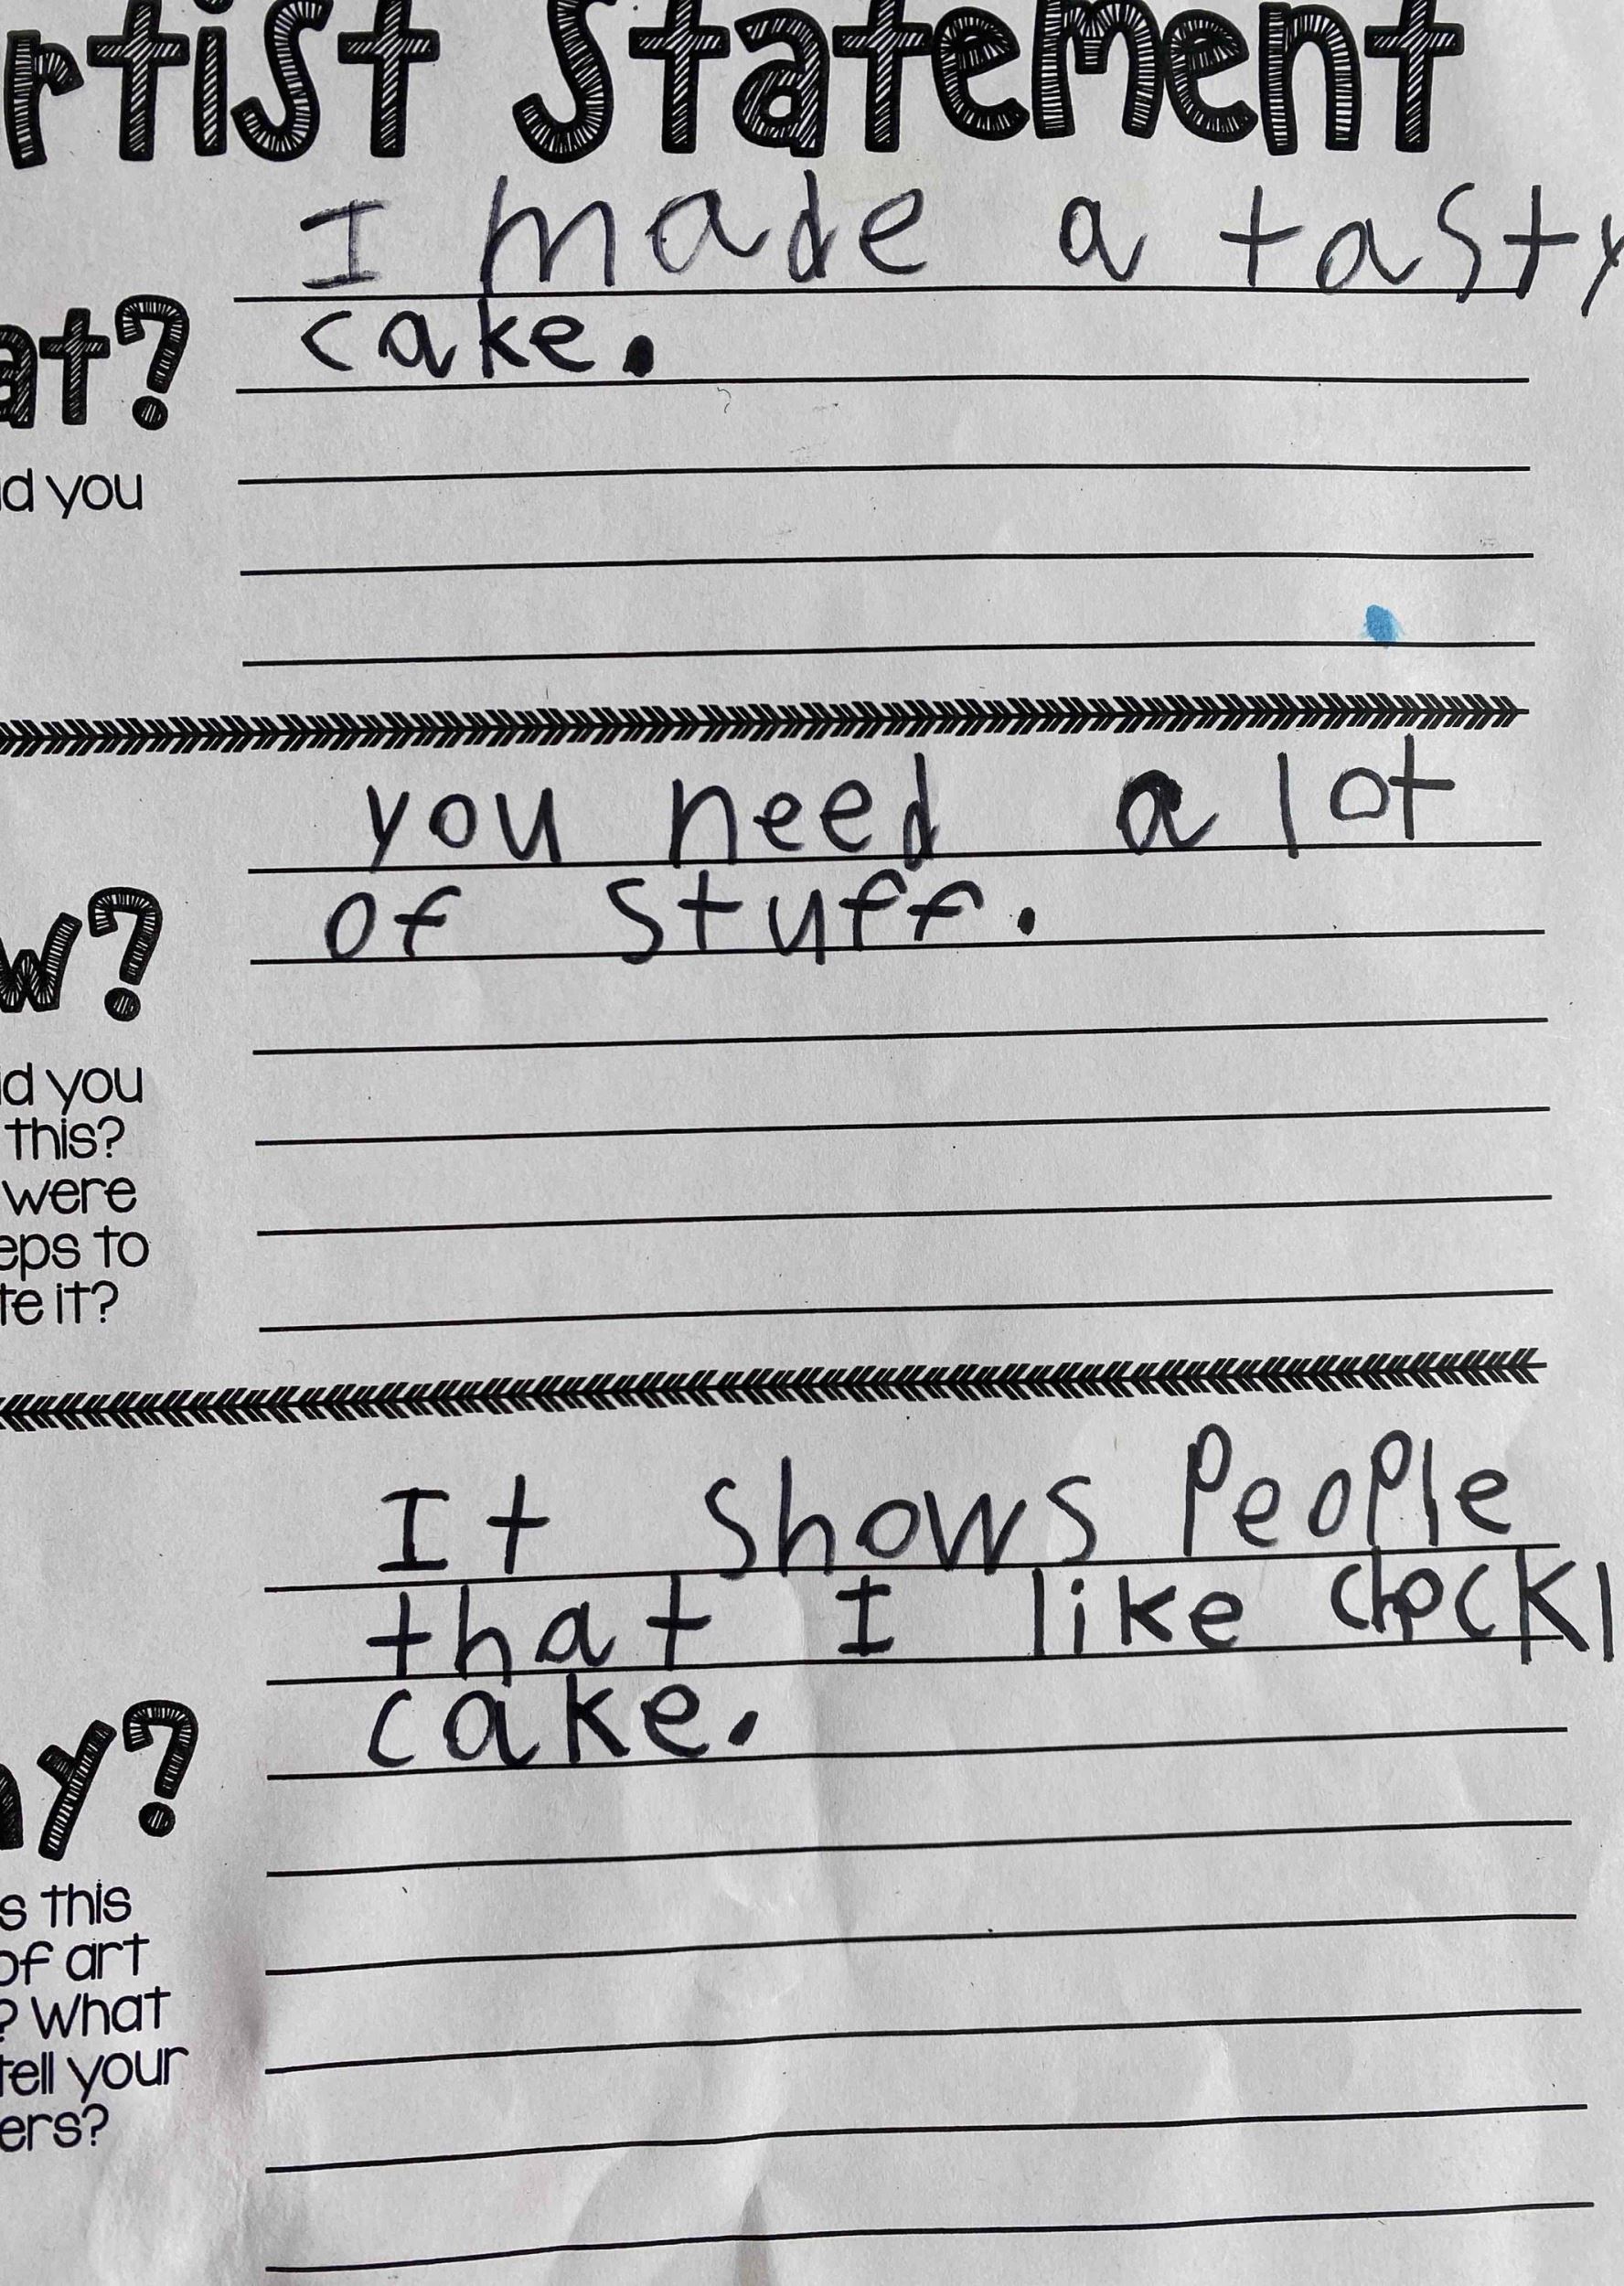 rtist Statement
I made a tasty
cake.
at?
d you
you need a lot
of stuff.
w?
id you
this?
were
eps to
te it?
It shows People
that I like chockl
cake.
hy?
s this
of art
? What
tell your
ers?